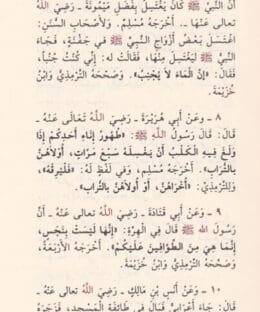 أَنَّ النَّبِيَّ ﷺ كَانَ يَغْتَسِلُ بِفَضْلِ مَيْمُونَةَ - رَضِيَ اللَّهُ
تعالى عَنْهَا -. أَخْرَجَهُ مُسْلِمٌ. وَلأَصْحَابِ السُّنَنِ:
اغْتَسَلَ بَعْضُ أَزْوَاجِ النَّبِيِّ ﷺ في جَفْنَةٍ، فَجَاءَ
النَّبِيُّ ﷺ لِيَغْتَسِلَ مِنْهَا، فَقَالَتْ له: إِنِّي كُنْتُ جُنُباً،
فَقَالَ: «إِنَّ الْمَاءَ لاَ يُجْنِبُ». وَصَحَّحَهُ التِّرْمِذِيُّ وَابْنُ
خُزَيْمَةَ.
٨ - وَعَنْ أَبِي هُرَيْرَةَ - رَضِيَ اللَّهُ تعالى عَنْهُ -
قَالَ: قَالَ رَسُولُ اللَّهِ ﷺ: «طَهُورُ إِنَاءِ أَحَدِكُمْ إِذَا
وَلَغَ فِيهِ الْكَلْبُ أَنْ يَغْسِلَهُ سَبْعَ مَرَّاتٍ، أُولاَهُنَّ
بِالتُّرَابِ». أَخْرَجَهُ مُسْلِمٌ، وَفِي لَفْظٍ لَهُ: «فَلْيُرِقْهُ»،
وَلِلتِّرْمِذِيِّ: «أُخْرَاهُنَّ، أَوْ أُولاَهُنَّ بِالتُّرَابِ».
٩ - وَعَنْ أَبِي قَتَادَةَ - رَضِيَ اللَّهُ تعالى عَنْهُ - أَنَّ
رَسُولَ اللهِ ﷺ قَالَ فِي الْهِرَّةِ: «إِنَّهَا لَيْسَتْ بِنَجَسٍ،
إِنَّمَا هِيَ مِنَ الطَّوَّافِينَ عَلَيْكُمْ». أَخْرَجَهُ الأَرْبَعَةُ،
وَصَحَّحَهُ التِّرْمِذِيُّ وَابْنُ خُزَيْمَةَ.
١٠ - وَعَنْ أَنَسِ بْنِ مَالِكٍ - رَضِيَ اللَّهُ تعالى عَنْهُ -
قَالَ: جَاءَ أَعْرَابِيٌّ فَبَالَ فِي طَائِفَةِ الْمَسْجِدِ، فَزَجَرَهُ